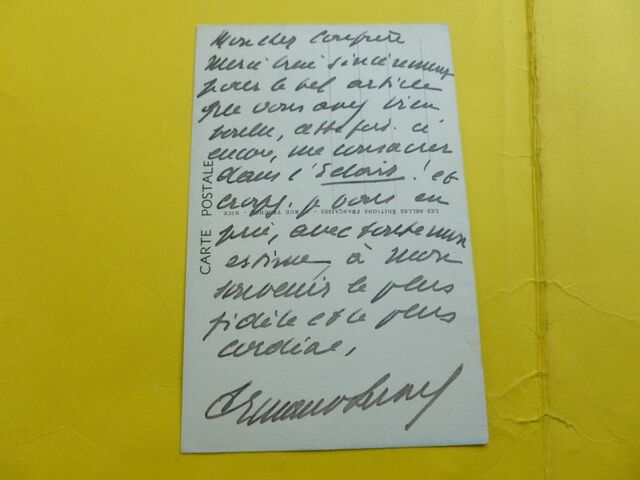 Mon cher Confrère
Merci bien sincèrement
pour le bel article
que vous avez bien
voulu, cette fois-ci
encore, me consacrer
dans l'Eclair! et
croyez, je vous en
prie, avec toute mon
estime, à mon
souvenir le plus
fidèle et le plus
cordial,
CARTE POSTALE
LES BELLES ÉDITIONS FRANÇAISES - RUE - NICE